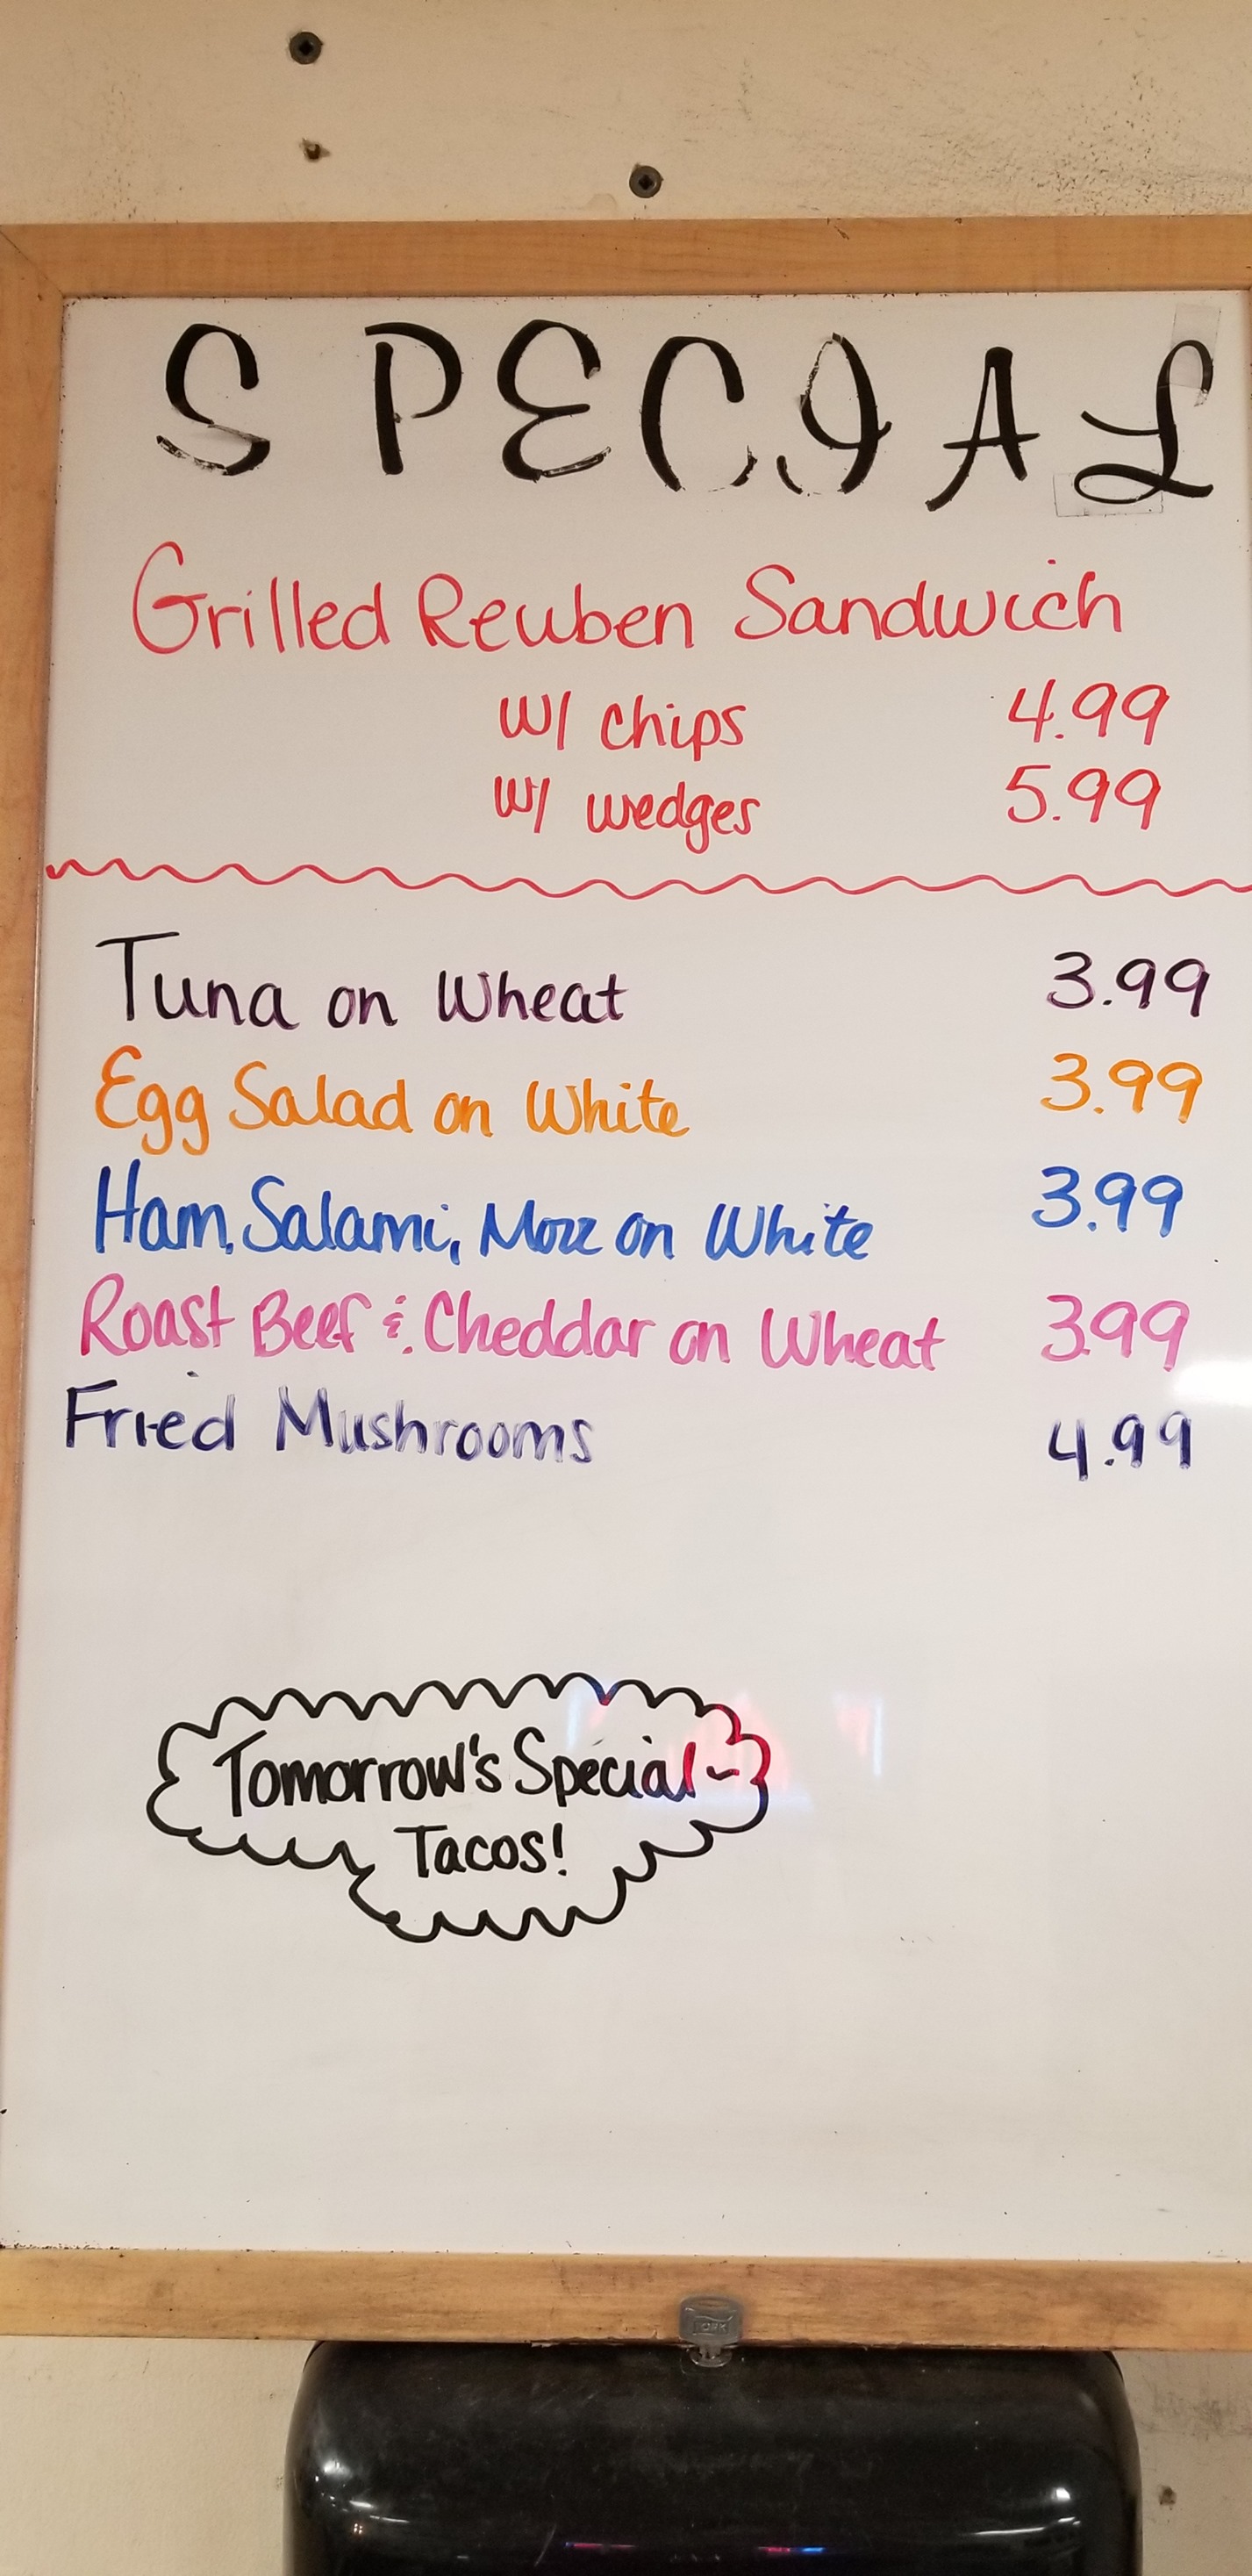 SPECIAL
Grilled Reuben Sandwich
w/ chips 4.99
w/ wedges 5.99
Tuna on Wheat 3.99
Egg Salad on White 3.99
Ham, Salami, Mozz on White 3.99
Roast Beef & Cheddar on Wheat 3.99
Fried Mushrooms 4.99
Tomorrow's Special-
Tacos!